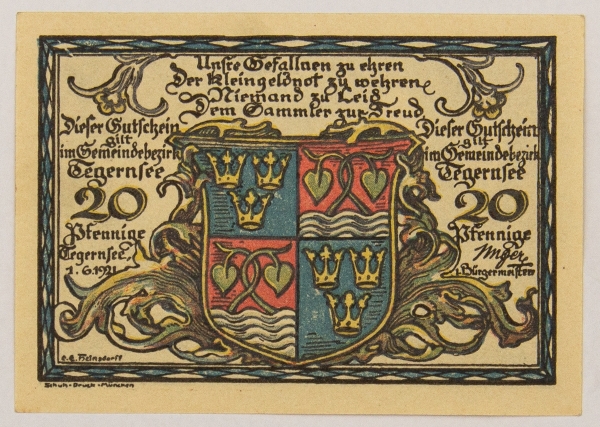 Unsre Gefallnen zu ehren
Der Kleingeldnot zu wehren
Niemand zu Leid
Dem Sammler zur Freud
Dieser Gutschein
gilt
im Gemeindebezirk
Tegernsee
20
Pfennige
Tegernsee
1.6.1921
Dieser Gutschein
gilt
im Gemeindebezirk
Tegernsee
20
Pfennige
1. Bürgermeister
Schuh-Druck-München